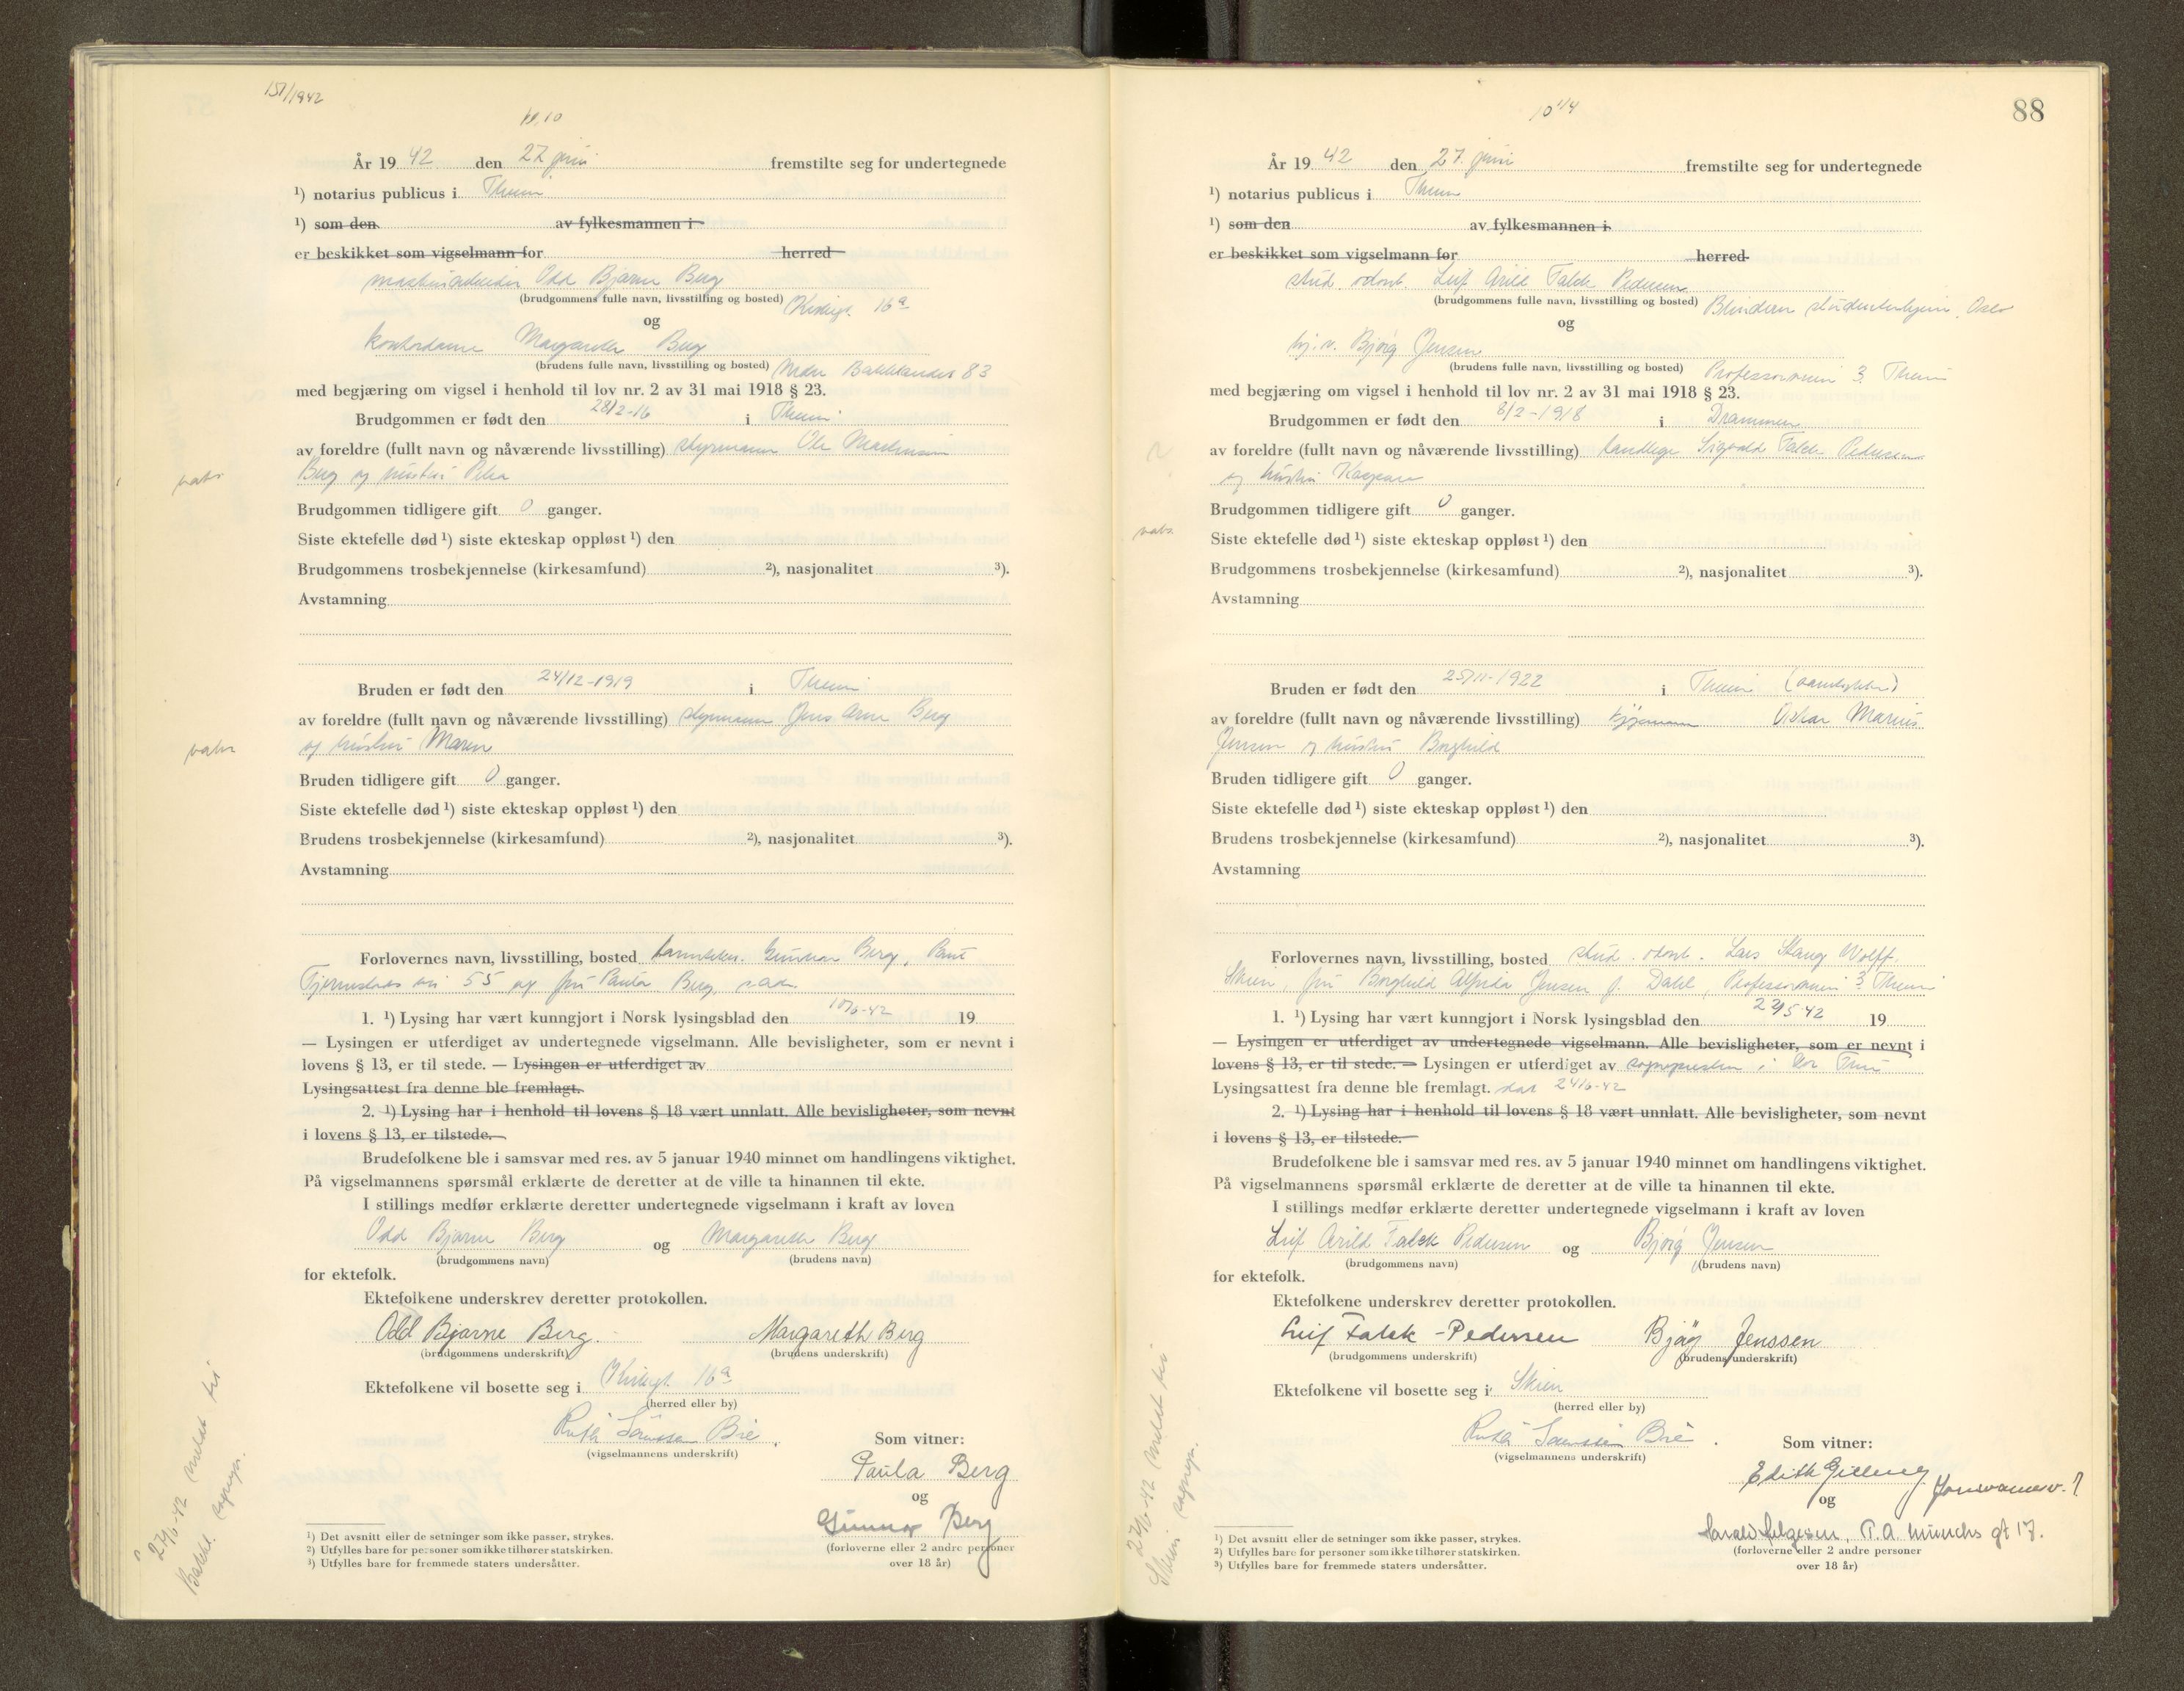 151/1942
År 19 42 den 27 juni fremstilte seg for undertegnede
¹) notarius publicus i Theim
¹) som den av fylkesmannen i
er beskikket som vigselmann for herred
maskinarbeider Odd Bjarne Berg
(brudgommens fulle navn, livsstilling og bosted) 16ª
og
kontordame Margareth Berg
(brudens fulle navn, livsstilling og bosted) Nedre Bakklandet 83
med begjæring om vigsel i henhold til lov nr. 2 av 31 mai 1918 § 23.
Brudgommen er født den 28/2-16 i Theim
av foreldre (fullt navn og nåværende livsstilling) styrmann Ole
Berg og hustru Petra
Brudgommen tidligere gift 0 ganger.
Siste ektefelle død ¹) siste ekteskap oppløst ¹) den
Brudgommens trosbekjennelse (kirkesamfund) ²), nasjonalitet ³).
Avstamning
Bruden er født den 24/12-1919 i Theim
av foreldre (fullt navn og nåværende livsstilling) styrmann Jens Arne Berg
og hustru Maren
Bruden tidligere gift 0 ganger.
Siste ektefelle død ¹) siste ekteskap oppløst ¹) den
Brudens trosbekjennelse (kirkesamfund) ²), nasjonalitet ³).
Avstamning
Forlovernes navn, livsstilling, bosted Gunnar Berg,
55 og fru Paula Berg, s.adr.
1. ¹) Lysing har vært kunngjort i Norsk lysingsblad den 10/6-42 19
— Lysingen er utferdiget av undertegnede vigselmann. Alle bevisligheter, som er nevnt i
lovens § 13, er til stede. — Lysingen er utferdiget av
Lysingsattest fra denne ble fremlagt.
2. ¹) Lysing har i henhold til lovens § 18 vært unnlatt. Alle bevisligheter, som nevnt
i lovens § 13, er tilstede.
Brudefolkene ble i samsvar med res. av 5 januar 1940 minnet om handlingens viktighet.
På vigselmannens spørsmål erklærte de deretter at de ville ta hinannen til ekte.
I stillings medfør erklærte deretter undertegnede vigselmann i kraft av loven
Odd Bjarne Berg og Margareth Berg
(brudgommens navn) (brudens navn)
for ektefolk.
Ektefolkene underskrev deretter protokollen.
Odd Bjarne Berg. Margareth Berg
(brudgommens underskrift) (brudens underskrift)
Ektefolkene vil bosette seg i 16ª
(herred eller by)
Ruth Sørensen Bie.
(vigselmannens underskrift)
Som vitner:
Paula Berg
og
Gunnar Berg
(forloverne eller 2 andre personer
over 18 år)
¹) Det avsnitt eller de setninger som ikke passer, strykes.
²) Utfylles bare for personer som ikke tilhører statskirken.
³) Utfylles bare for fremmede staters undersåtter.
27/6-42 meldt til
Bakkl. sogнepr.
88
År 19 42 den 27. juni fremstilte seg for undertegnede
¹) notarius publicus i Theim
¹) som den av fylkesmannen i
er beskikket som vigselmann for herred
stud. odont. Leif Arild Falck Pedersen
(brudgommens fulle navn, livsstilling og bosted) Blindern studenterhjem, Oslo
og
hj.v. Bjørg Jensen
(brudens fulle navn, livsstilling og bosted) 3 Theim
med begjæring om vigsel i henhold til lov nr. 2 av 31 mai 1918 § 23.
Brudgommen er født den 8/2-1918 i Drammen
av foreldre (fullt navn og nåværende livsstilling) tandlege Sigvald Falck Pedersen
og hustru Kaspara
Brudgommen tidligere gift 0 ganger.
Siste ektefelle død ¹) siste ekteskap oppløst ¹) den
Brudgommens trosbekjennelse (kirkesamfund) ²), nasjonalitet ³).
Avstamning
Bruden er født den 25/11-1922 i Theim
av foreldre (fullt navn og nåværende livsstilling) Oskar Marius
Jensen og hustru Borghild
Bruden tidligere gift 0 ganger.
Siste ektefelle død ¹) siste ekteskap oppløst ¹) den
Brudens trosbekjennelse (kirkesamfund) ²), nasjonalitet ³).
Avstamning
Forlovernes navn, livsstilling, bosted stud. odont. Lars Stang Wolff.
Skien, fru Borghild Alfida Jensen f. Dahl, 3 Theim
1. ¹) Lysing har vært kunngjort i Norsk lysingsblad den 19
— Lysingen er utferdiget av undertegnede vigselmann. Alle bevisligheter, som er nevnt i
lovens § 13, er til stede. — Lysingen er utferdiget av sognepresten i
Lysingsattest fra denne ble fremlagt. dat 24/6-42
2. ¹) Lysing har i henhold til lovens § 18 vært unnlatt. Alle bevisligheter, som nevnt
i lovens § 13, er tilstede.
Brudefolkene ble i samsvar med res. av 5 januar 1940 minnet om handlingens viktighet.
På vigselmannens spørsmål erklærte de deretter at de ville ta hinannen til ekte.
I stillings medfør erklærte deretter undertegnede vigselmann i kraft av loven
Leif Arild Falck Pedersen og Bjørg Jensen
(brudgommens navn) (brudens navn)
for ektefolk.
Ektefolkene underskrev deretter protokollen.
Leif Falck-Pedersen Bjørg Jenssen
(brudgommens underskrift) (brudens underskrift)
Ektefolkene vil bosette seg i Skien
(herred eller by)
Ruth Sørensen Bie.
(vigselmannens underskrift)
Som vitner:
Edith
og
Harald Helgesen, P.A. Munchs gt 17.
(forloverne eller 2 andre personer
over 18 år)
¹) Det avsnitt eller de setninger som ikke passer, strykes.
²) Utfylles bare for personer som ikke tilhører statskirken.
³) Utfylles bare for fremmede staters undersåtter.
27/6-42 meldt til
Skien sognepr.